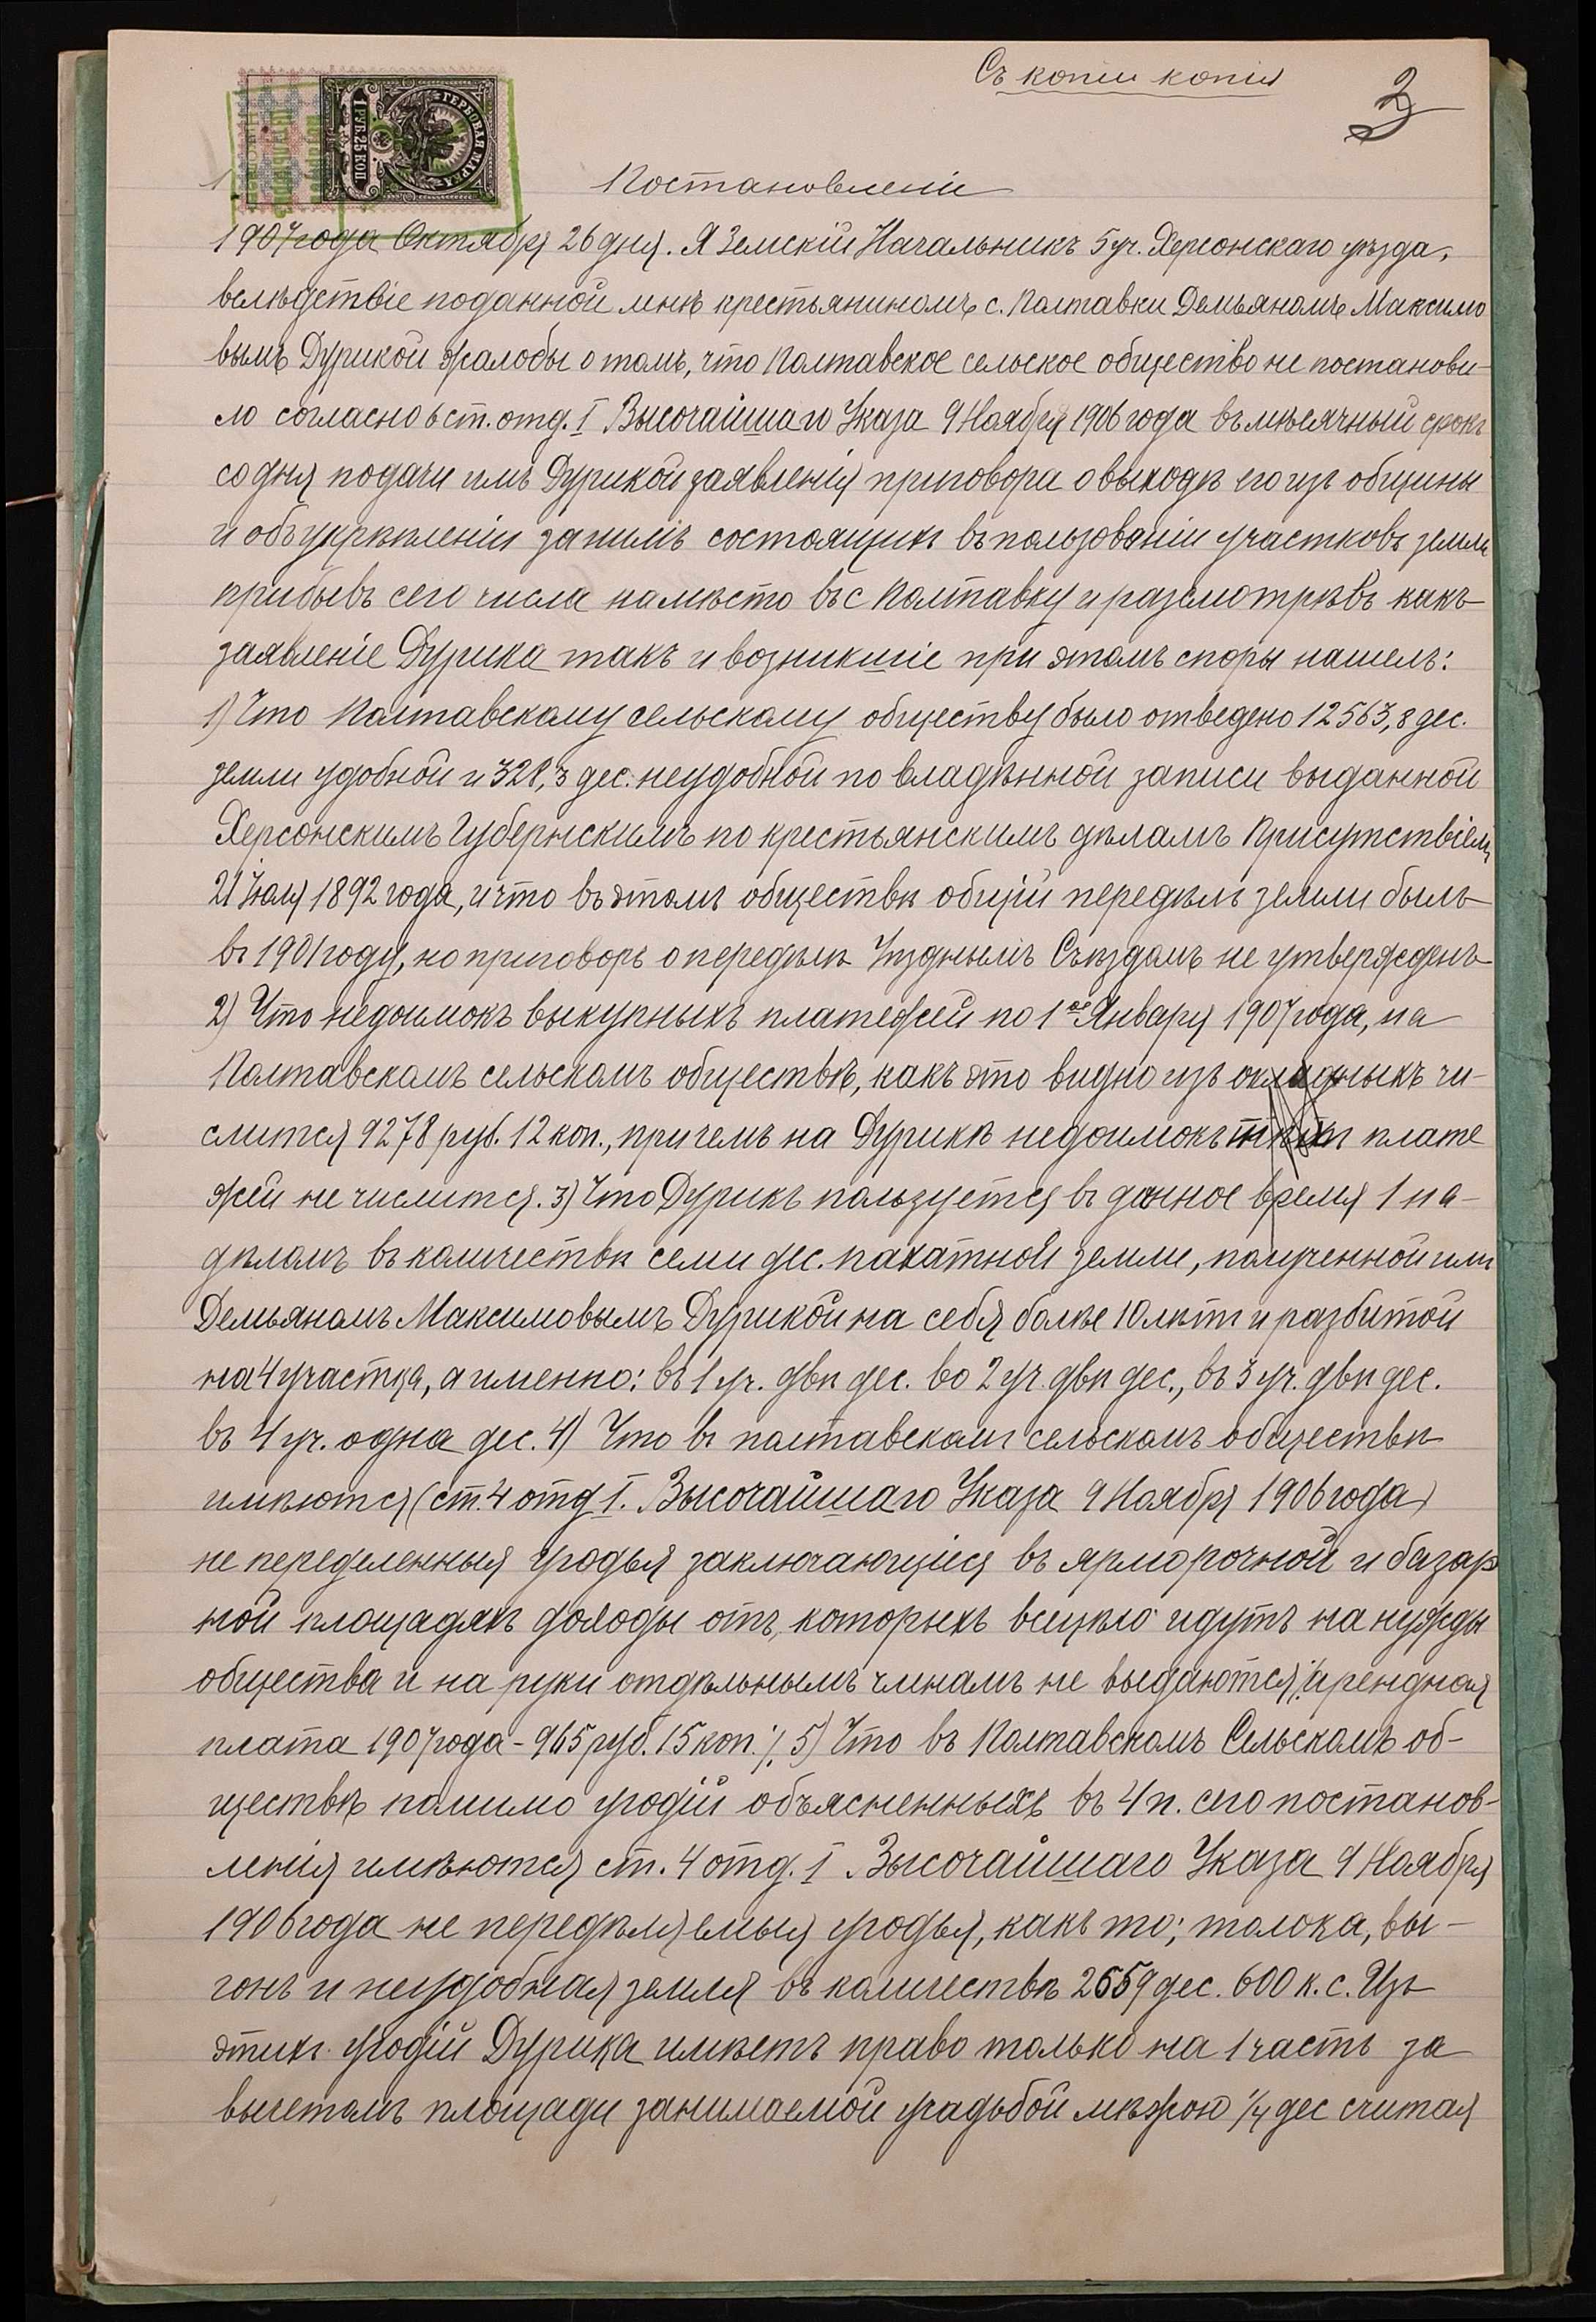 Съ копіи копія
3
ГЕРБОВАЯ МАРКА
1 РУБ. 25 КОП.
Постановленіе
1907 года Октября 26 дня. Я Земскій Начальникъ 5 уч. Херсонскаго уѣзда,
вслѣдствіе поданной мнѣ крестьяниномъ с. Полтавки Демьяномъ Максимо
вымъ Дурикой жалобы о томъ, что Полтавское сельское общество не постанови-
ло согласно 6 ст. отд. I Высочайшаго Указа 9 Ноября 1906 года въ мѣсячный срокъ
со дня подачи имъ Дурикой заявленія приговора о выходѣ его изъ общины
и объ укрѣпленіи за нимъ состоящихъ въ пользованіи участковъ земли
прибывъ сего числа на мѣсто въ с Полтавку и разсмотрѣвъ какъ
заявленіе Дурика такъ и возникшіе при этомъ споры нашелъ:
1) Что Полтавскому сельскому обществу было отведено 12563,8 дес.
земли удобной и 328,3 дес. неудобной по владѣнной записи выданной
Херсонскимъ Губернскимъ по крестьянскимъ дѣламъ Присутствіемъ
21 Іюля 1892 года, и что въ этомъ обществѣ общій передѣлъ земли былъ
въ 1901 году, но приговоръ о передѣлѣ Уѣзднымъ Съѣздомъ не утвержденъ
2) Что недоимокъ выкупныхъ платежей по 1ое Января 1907 года, на
Полтавскомъ сельскомъ обществѣ, какъ это видно изъ окладныхъ чи-
слится 9278 руб. 12 коп., причемъ на Дурикѣ недоимокъ плате
жей не числится. 3) Что Дурикъ пользуется въ данное время 1 на-
дѣломъ въ количествѣ семи дес. пахатной земли, полученной имъ
Демьяномъ Максимовымъ Дурикой на себя болѣе 10 лѣтъ и разбитой
на 4 участка, а именно: въ 1 уч. двѣ дес. во 2 уч. двѣ дес., въ 3 уч. двѣ дес.
въ 4 уч. одна дес. 4) Что въ полтавскомъ сельскомъ обществѣ
имѣются (ст. 4 отд I. Высочайшаго Указа 9 Ноября 1906 года)
не переделенныя угодья заключающіеся въ ярморочной и базар
ной площадяхъ доходы отъ которыхъ всецѣло идутъ на нужды
общества и на руки отдѣльнымъ членамъ не выдаются /арендная
плата 1907 года - 965 руб. 15 коп./. 5) Что въ Полтавскомъ Сельскомъ об-
ществѣ помимо угодій объясненныхъ въ 4 п. сего постанов-
ленія имѣются ст. 4 отд. I Высочайшаго Указа 9 Ноября
1906 года не передѣляемыя угодья, какъ то; толока, вы-
гонъ и неудобная земля въ количествѣ 2659 дес. 600 к. с. Изъ
этихъ угодій Дурика имѣетъ право только на 1 часть за
вычетомъ площади занимаемой усадьбой мѣрою 1/4 дес считая